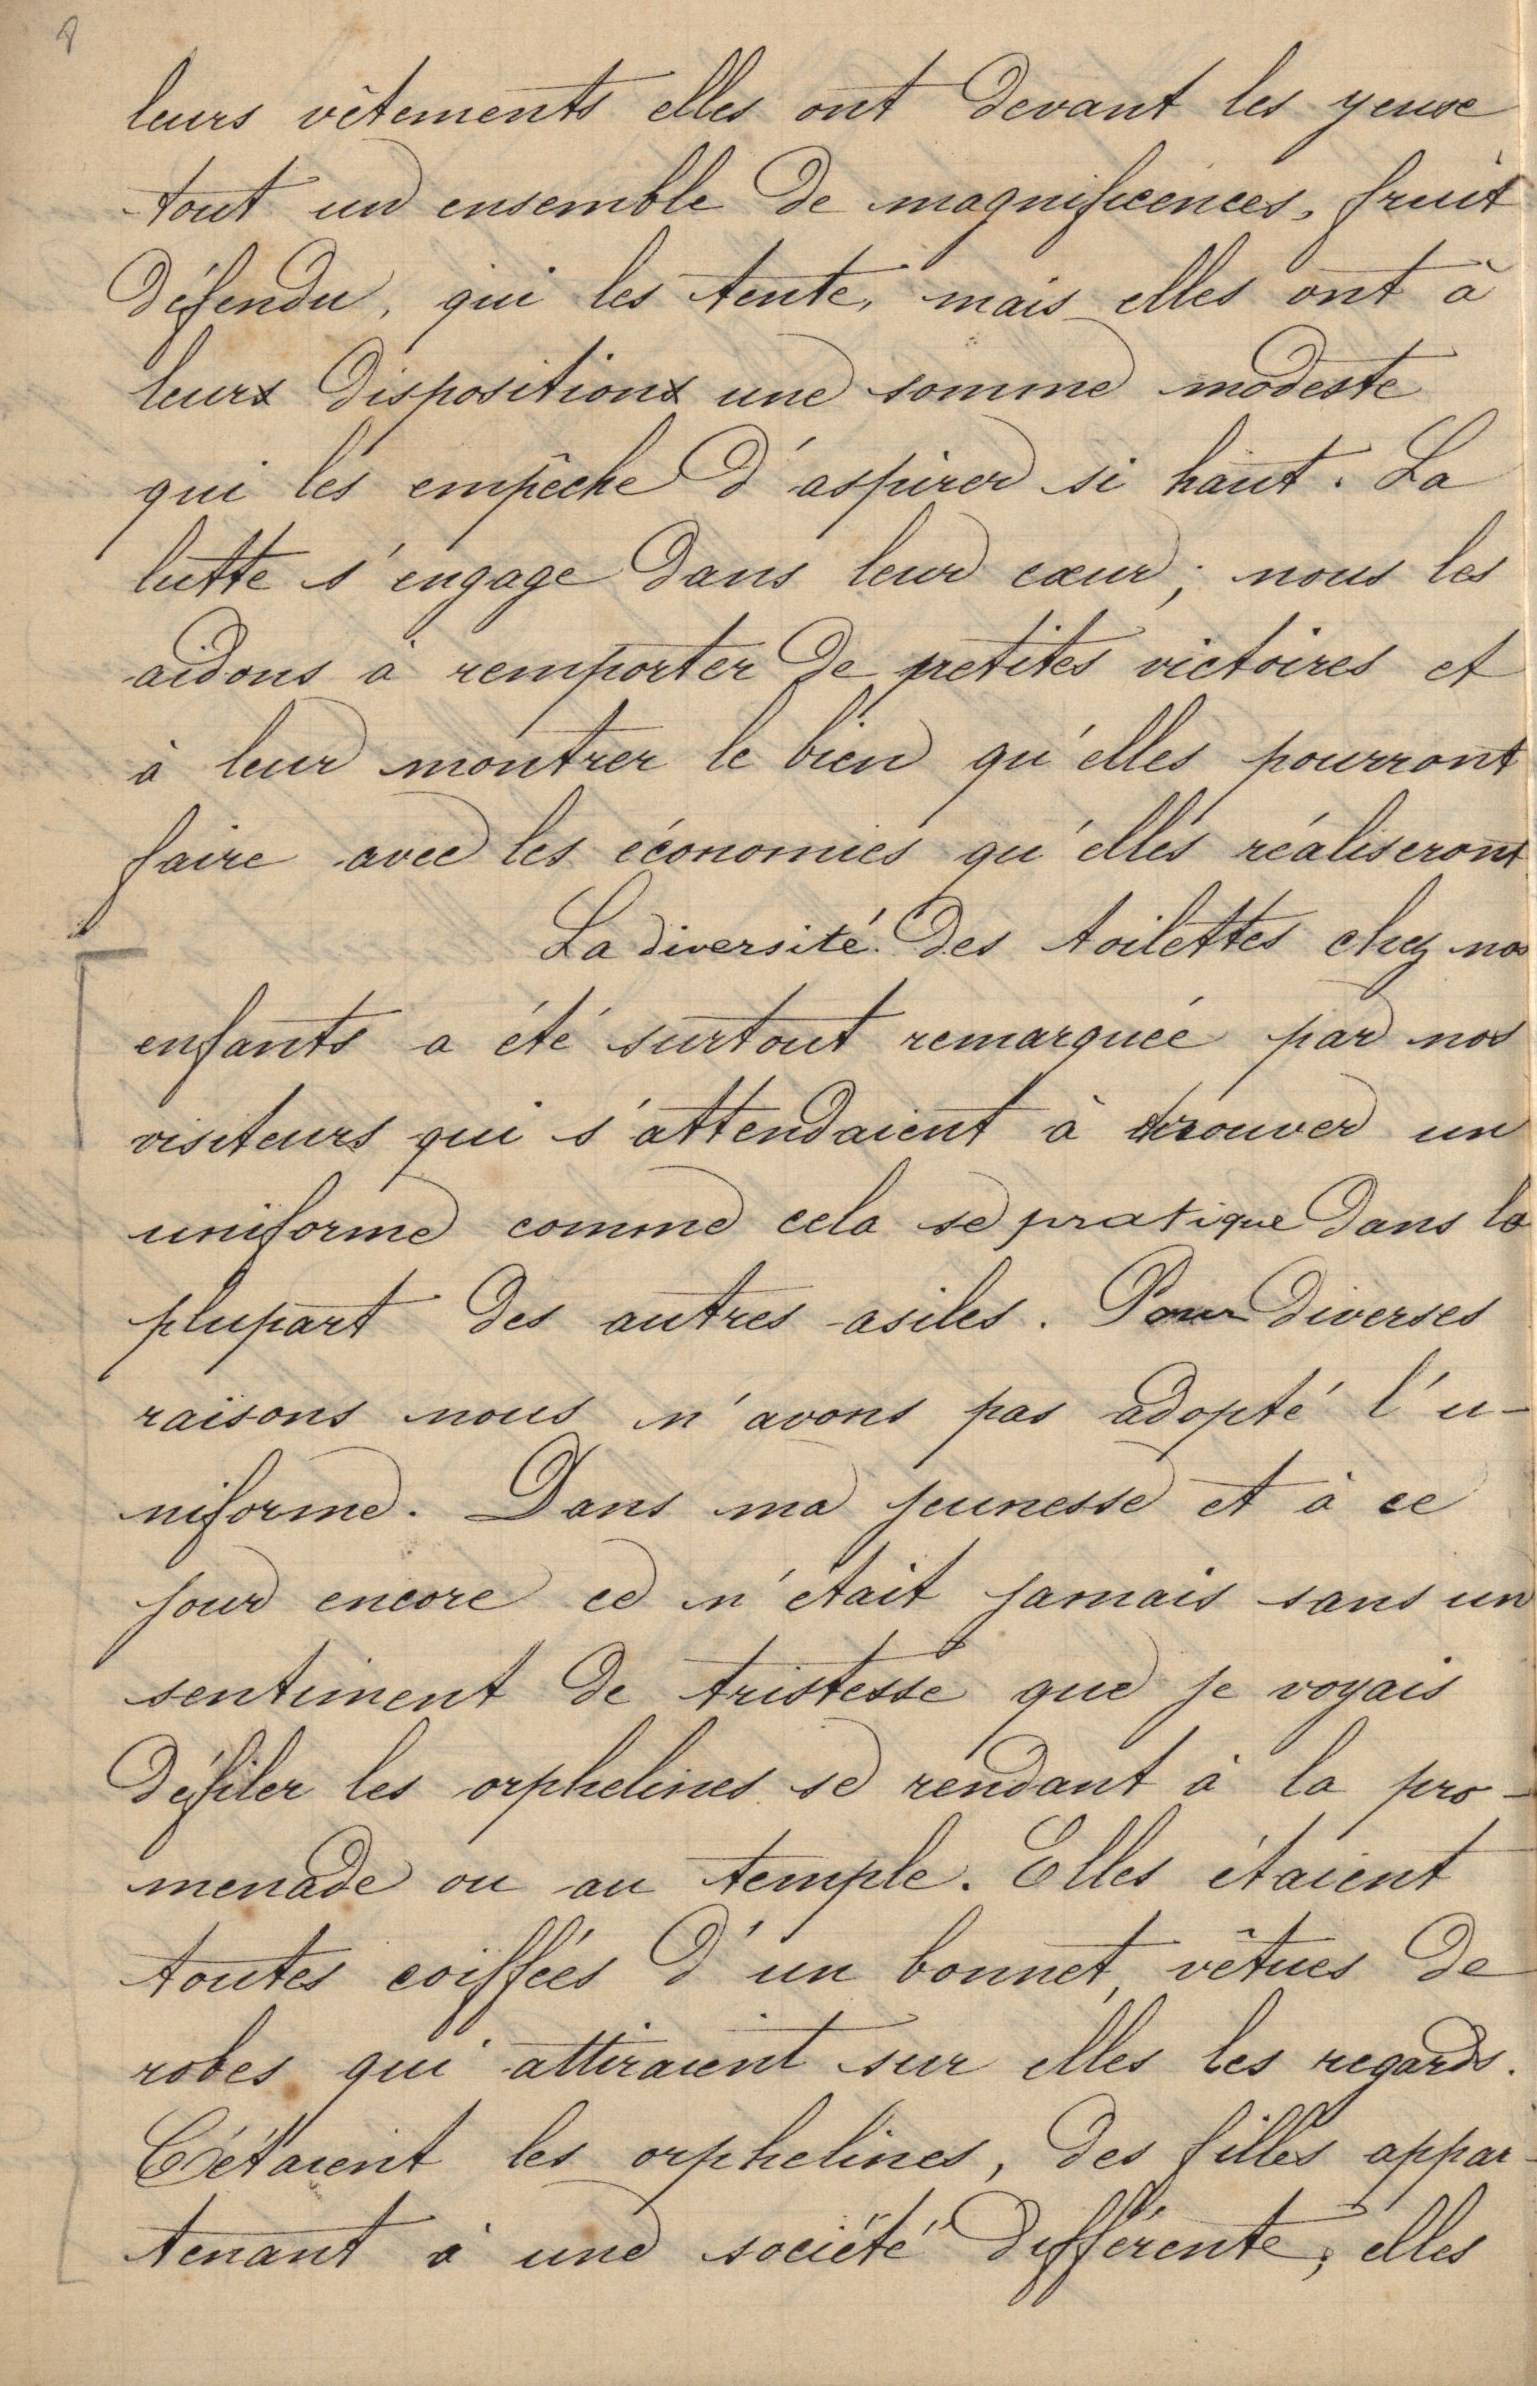 8
leurs vêtements elles ont devant les yeux
tout un ensemble de magnificences, fruit
défendu, qui les tente, mais elles ont à
leurs dispositions une somme modeste
qui les empêche d'aspirer si haut. La
lutte s'engage dans leur cœur; nous les
aidons à remporter de petites victoires et
à leur montrer le bien qu'elles pourront
faire avec les économies qu'elles réaliseront
La diversité des toilettes chez nos
enfants a été surtout remarquée par nos
visiteurs qui s'attendaient à trouver un
uniforme comme cela se pratique dans la
plupart des autres asiles. Pour diverses
raisons nous n'avons pas adopté l'u-
niforme. Dans ma jeunesse et à ce
jour encore ce n'était jamais sans un
sentiment de tristesse que je voyais
défiler les orphelines se rendant à la pro-
menade ou au temple. Elles étaient
toutes coiffées d'un bonnet, vêtues de
robes qui attiraient sur elles les regards.
C'étaient les orphelines, des filles appar-
tenant à une société différente; elles